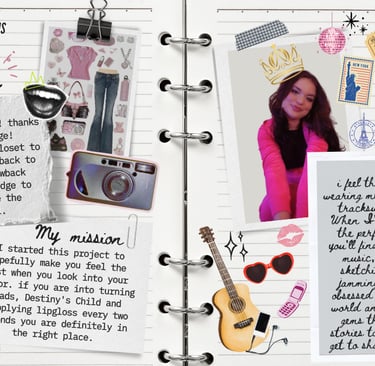 ! thanks
ge!
closet to
back to
wback
dge to
e the
My mission
I started this project to
opefully make you feel the
st when you look into your
or. if you are into turning
ads, Destiny's Child and
pplying lipgloss every two
nds you are definitely in
the right place.
i feel th
wearing m
tracksu
When I
the perf
you'll fin
music,
sketchi
jammin
obsessed
world an
gems th
stories to
get to sh